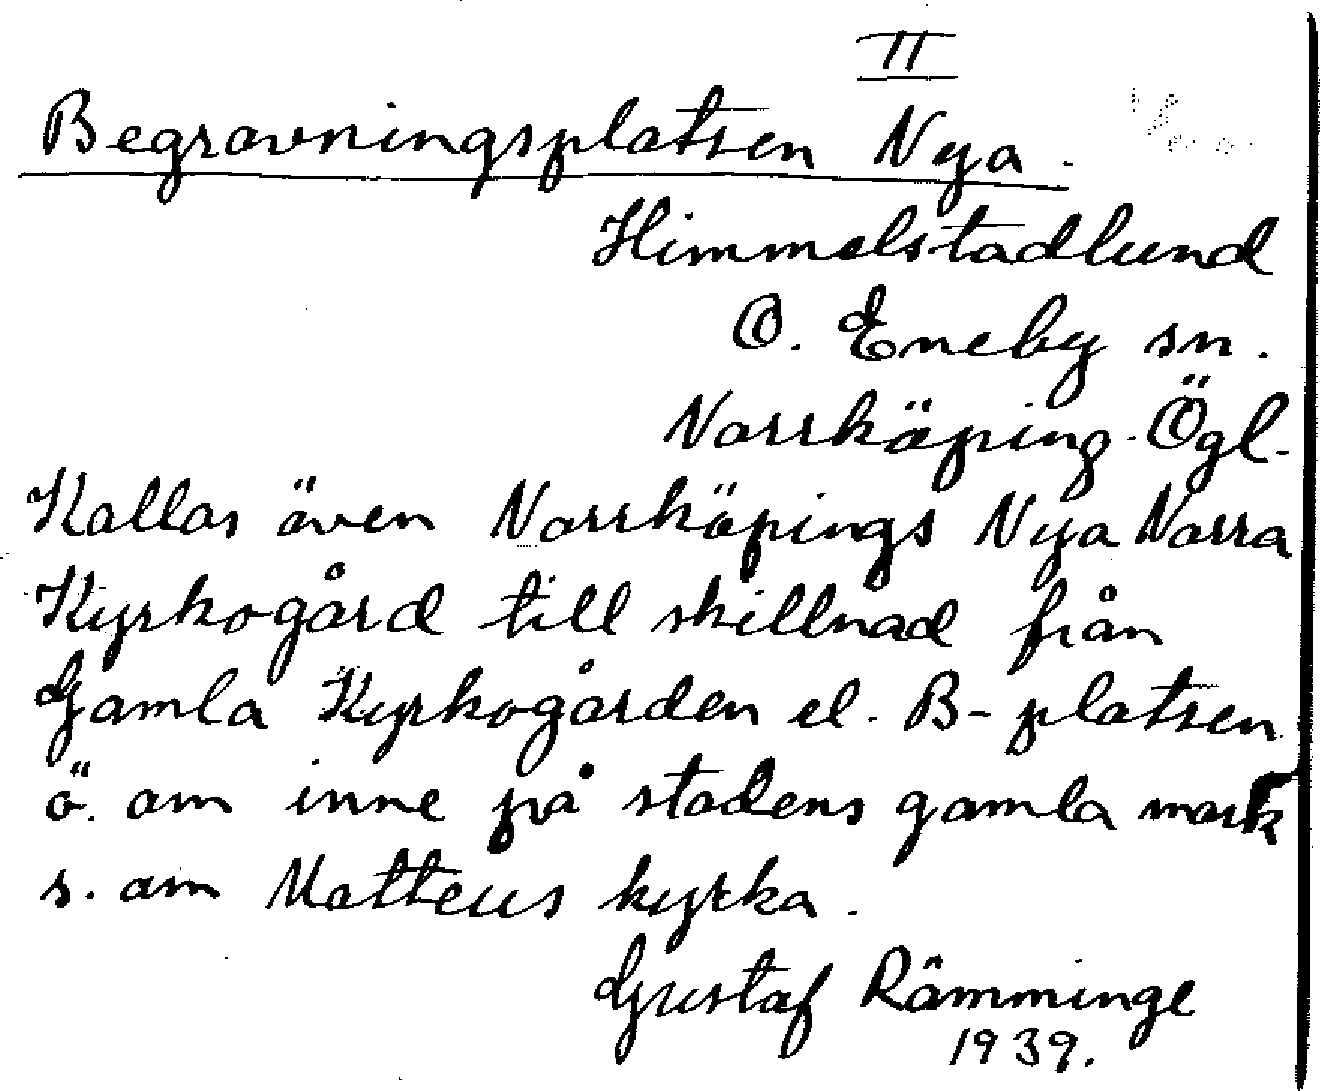 II
Begravningsplatsen Nya.
Himmelstadlund
Ö. Eneby sn.
Norrköping. Ögl.
Kallas även Norrköpings Nya Norra
Kyrkogård till skillnad från
Gamla Kyrkogården el. B-platsen
ö. om inne på stadens gamla mark
s. om Matteus kyrka.
Gustaf Rämminge
1939.